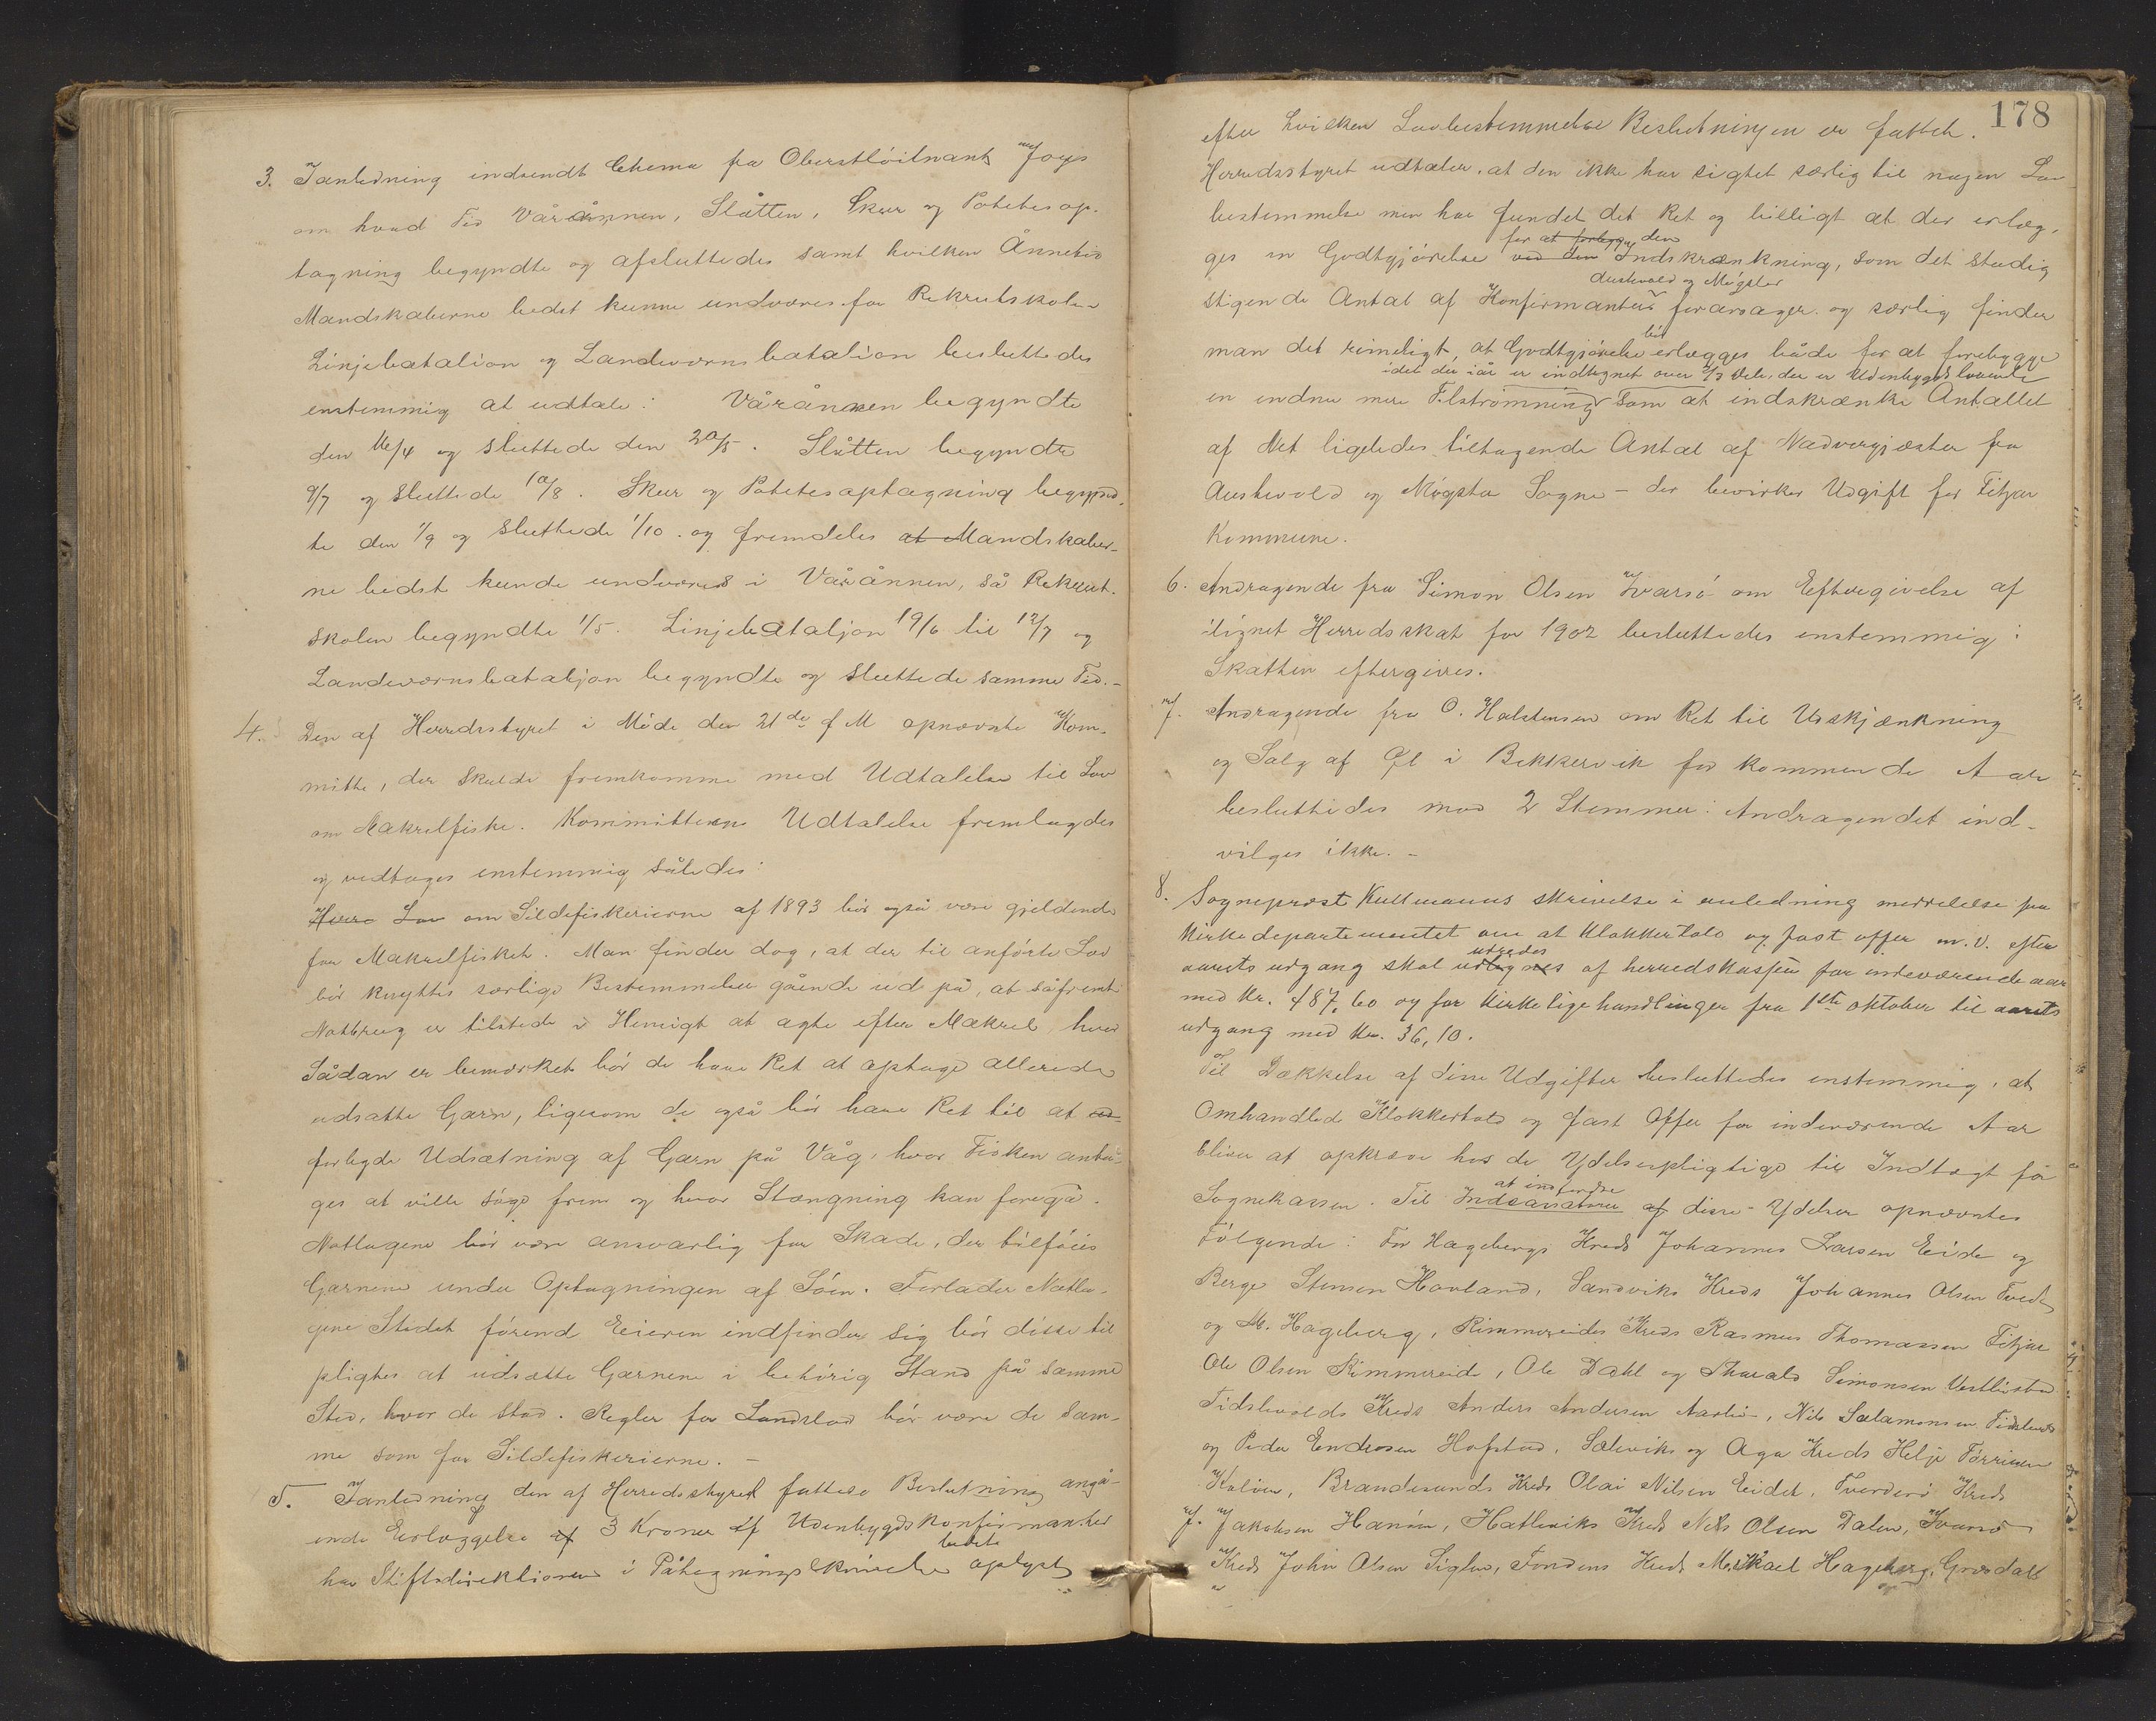 3. Ianledning indsendt Skema fra Oberstløitnant Joys
om hvad Tid Vårånnen, Slåtten, Skur og Potetesop-
tagning begyndte og afsluttedes samt hvilken Ånnetid
Mandskaberne bedst kunne undværes for Rekrutskolen
Linjebatalion og Landeværnsbatalion besluttedes
enstemmig at udtale: Vårånnen begyndte
den 16/4 og sluttede den 20/5. Slåtten begyndte
9/7 og sluttede 10/8. Skur og Potetesoptagning begynd-
te den 1/9 og sluttede 1/10. og fremdeles at Mandskaber-
ne bedst kunde undværes i Vårånnen, så Rekrut-
skolen begyndte 1/5. Linjebataljon 19/6 til 12/7 og
Landeværnsbataljon begyndte og sluttede samme Tid.-
4. Den af Herredsstyret i Møde den 21de f M opnævnte Kom-
mitte, der skulde fremkomme med Udtalelse til Lov
om Makrelfiske. Kommitteens Udtalelse fremlagdes
og vedtoges enstemmig således:
Lov om Sildefiskerierne af 1893 bør også være gjeldende
for Makrelfisket. Man finder dog, at der til anførte Lov
bør knyttes særlige Bestemmelser gående ud på, at såfremt
Notbrug er tilstede i Hensigt at agte efter Makrel, hvor
Sådan er bemærket bør de have Ret at optage allerede
udsatte Garn, ligesom de også bør have Ret til at
forbyde Udsætning af Garn på Våg, hvor Fisken anta-
ges at ville søge frem og hvor Stængning kan foregå.
Notlagene bør være ansvarlig for Skade, der tilføies
Garnene under Optagningen af Søen. Forlader Notla-
gene Stedet førend Eieren indfinder sig bør disse til
pligtes at udsætte Garnene i behørig Stand på samme
Sted, hvor de stod. Regler for Landslod bør være de sam-
me som for Sildefiskerierne. -
5. Ianledning den af Herredsstyret fattede Beslutning angå-
ende Erlæggelse af 3 Kroner af Udenbygdskonfirmanter
har Stiftsdirektionen i Påtegningsskrivelse bedt oplyst
178
efter hvilken Lovbestemmelse Beslutningen er fattet.
Herredsstyret udtaler, at den ikke har sigtet særlig til nogen Lov
bestemmelse men har fundet det Ret og billigt at der erlæg-
for at forbygge den
ges en Godtgjørelse ved den Indskrænkning, som det stadig
Austevold og Møgster
stigende Antal af Konfirmanter forårsager og særlig finder
bør
man det rimeligt, at Godtgjørelse erlægges både for at forebygge
idet der iår er indtegnet over 2/3 Dele, der er Udenbygds boende
en endnu mere Tilstrømning som at indskrænke Antallet
af det ligeledes tiltagende Antal af Nadvergjæster fra
Austevold og Møgster Sogne - der bevirker Udgift for Fitjar
Kommune.
6. Andragende fra Simon Olsen Ivarsø om Eftergivelse af
ilignet Herredsskat for 1902 besluttedes enstemmig:
Skatten eftergives.
7. Andragende fra O. Halstensen om Ret til Udskjænkning
og Salg af Øl i Bekkervik for kommende Aar
besluttedes mod 2 Stemmer: Andragendet ind-
vilges ikke. -
8. Sogneprest Kullmanns skrivelse i anledning meddelelse fra
Kirkedepartementet om at Klokkertold og fast offer m.v. efter
udredes
aarets udgang skal udlignes af herredskassen for indeværende aar
med Kr. 487,60 og for Kirkelige handlinger fra 1ste oktober til aarets
udgang med Kr. 36,10.
Til Dækkelse af disse Udgifter besluttedes enstemmig, at
Omhandled Klokkertold og fast Offer for indeværende Aar
bliver at opkræve hos de Ydelsespligtige til Indtægt for
at indfordre
Sognekassen. Til af disse Ydelser opnævntes
Følgende: For Hagebergs Kreds Johannes Larsen Eide og
Berge Stensen Havland, Sandviks Kreds Johannes Olsen Tveds
og M. Hageberg, Rimmereides Kreds Rasmus Thomassen Fitjar
Ole Olsen Rimmereide, Ole Dahl og Tharald Simonsen Vestbøstad
Tidslevolds Kreds Anders Andersen Aarbø, Nils Salamonsen Tislevold
og Peder Endresen Hofstad, Sæleviks og Aga Kreds Helje Tørrisen
Kalven, Brandesunds Kreds Olai Nilsen Eidet, Tverderø Kreds
J. Jakobsen Hanøen, Hatleviks Kreds Nils Olsen Dalen, Ivarsø
Kreds John Olsen Siglen, Fondens Kreds Mikael Hageberg, Grøsdals